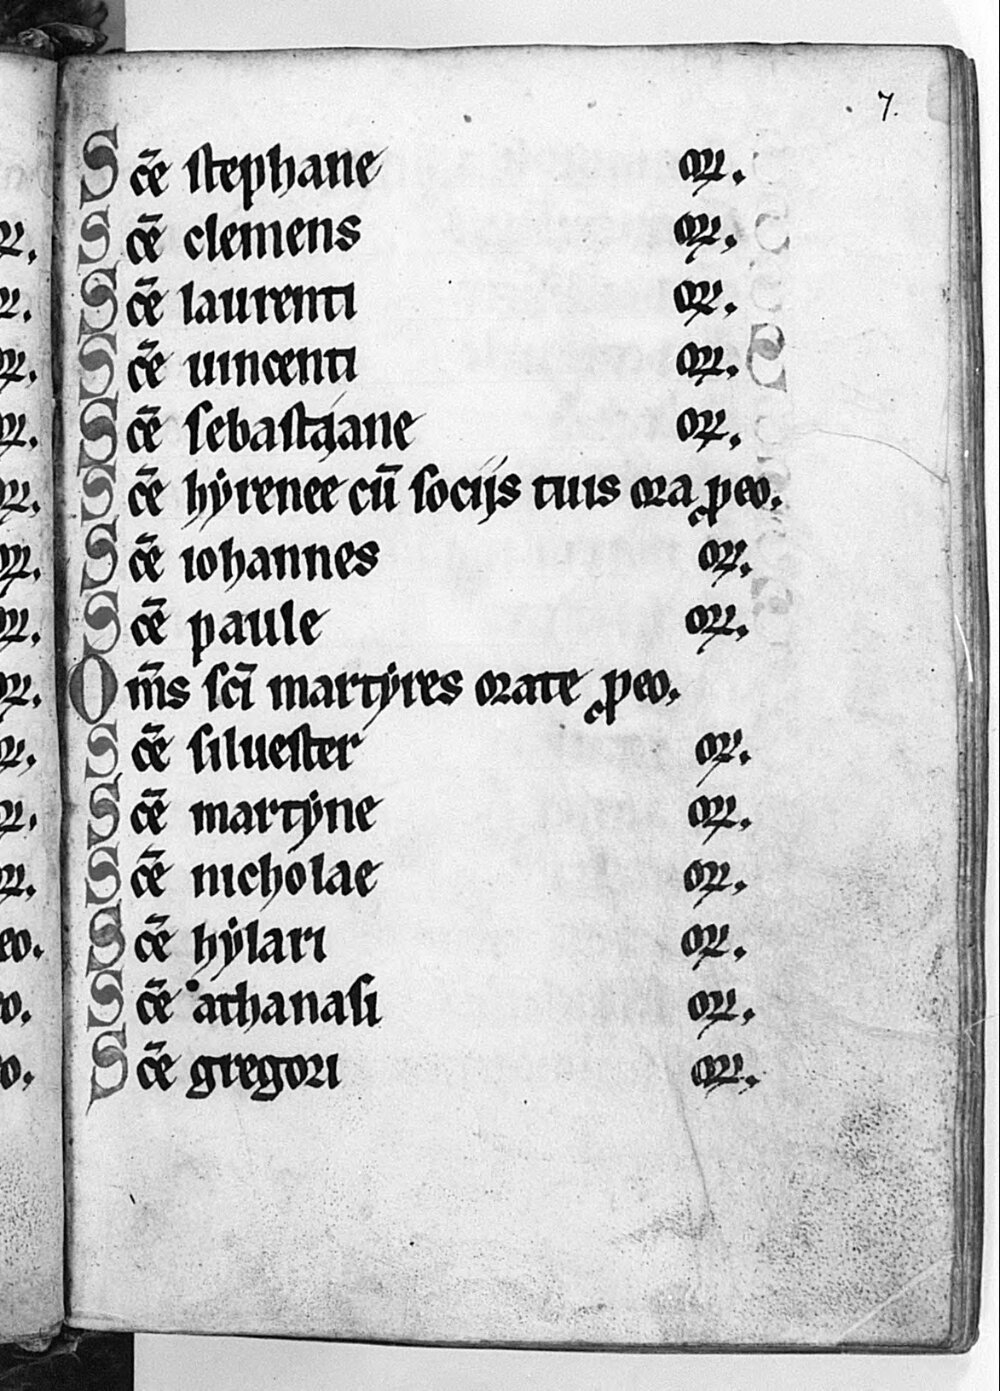 7.
Sc̄e stephane oꝝ.
Sc̄e clemens oꝝ.
Sc̄e laurenti oꝝ.
Sc̄e uincenti oꝝ.
Sc̄e sebastiane oꝝ.
Sc̄e hẏrenee cū socijs tuis ora ꝓ eo.
Sc̄e iohannes oꝝ.
Sc̄e paule oꝝ.
Om̄s sc̄i martẏres orate ꝓ eo.
Sc̄e siluester oꝝ.
Sc̄e martẏne oꝝ.
Sc̄e nicholae oꝝ.
Sc̄e hẏlari oꝝ.
Sc̄e athanasi oꝝ.
Sc̄e gregori oꝝ.